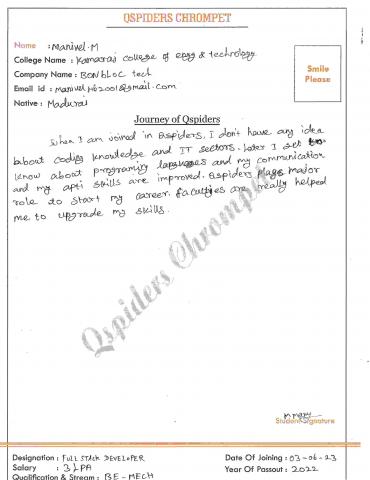 QSPIDERS CHROMPET
Name : Manivel.M
College Name : Kamaraj college of engg & technology
Company Name : BONbLOC tech
Email id : manivel462001@gmail.com
Native : Madurai
Smile
Please
Journey of Qspiders
When I am joined in Qspiders, I don't have any idea
about coding knowledge and IT sectors. Later I get to
know about programing languages and my communication
and my apti skills are improved. Qspiders plays major
role to start my career. faculties are really helped
me to upgrade my skills.
Qspiders Chrompet
Student Signature
Designation : FULL STACK DEVELOPER
Date Of Joining : 03-06-23
Salary : 3 LPA
Year Of Passout : 2022
Qualification & Stream : BE-MECH